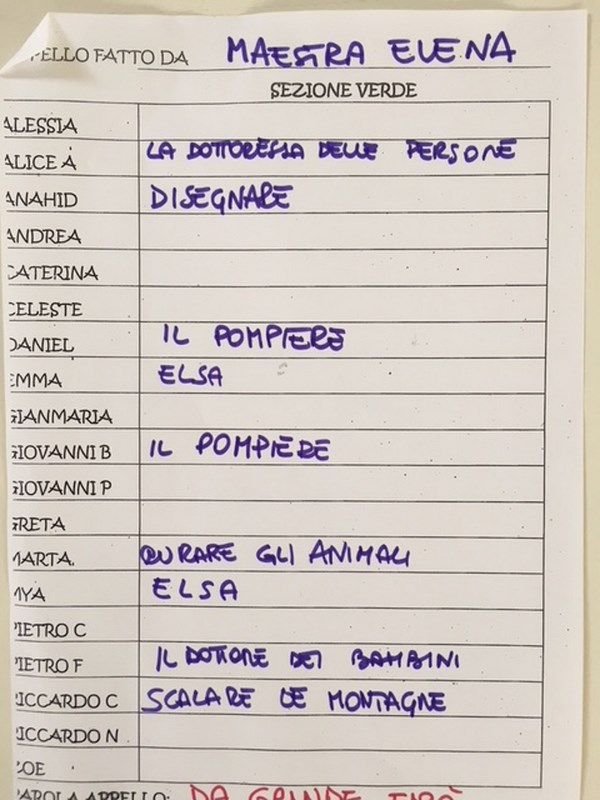 PELLO FATTO DA MAESTRA ELENA
SEZIONE VERDE
ALESSIA
ALICE A LA DOTTORESSA DELLE PERSONE
ANAHID DISEGNARE
ANDREA
CATERINA
CELESTE
DANIEL IL POMPIERE
EMMA ELSA
GIANMARIA
GIOVANNI B IL POMPIERE
GIOVANNI P
GRETA
MARTA. CURARE GLI ANIMALI
MYA ELSA
PIETRO C
PIETRO F IL DOTTORE DEI BAMBINI
RICCARDO C SCALARE LE MONTAGNE
RICCARDO N
ZOE
PAROLA APPELLO: DA GRANDE FARÒ